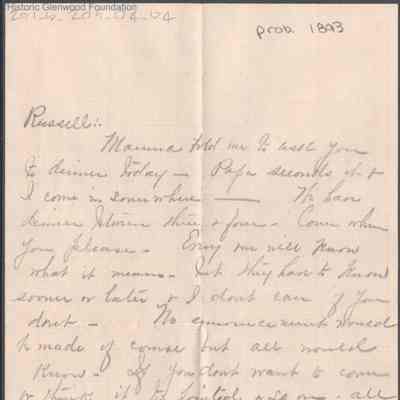 Historic Glenwood Foundation
2016.209.02.04
prob. 1893
Russell:-
Mamma told me to ask you
to dinner today - Papa seconds it &
I come in somewhere — We have
dinner between three & four - Come when
you please - Every one will know
what it means - but they have to know
sooner or later & I dont care if you
dont - No announcement would
be made of course but all would
know - If you dont want to come
or think it so all